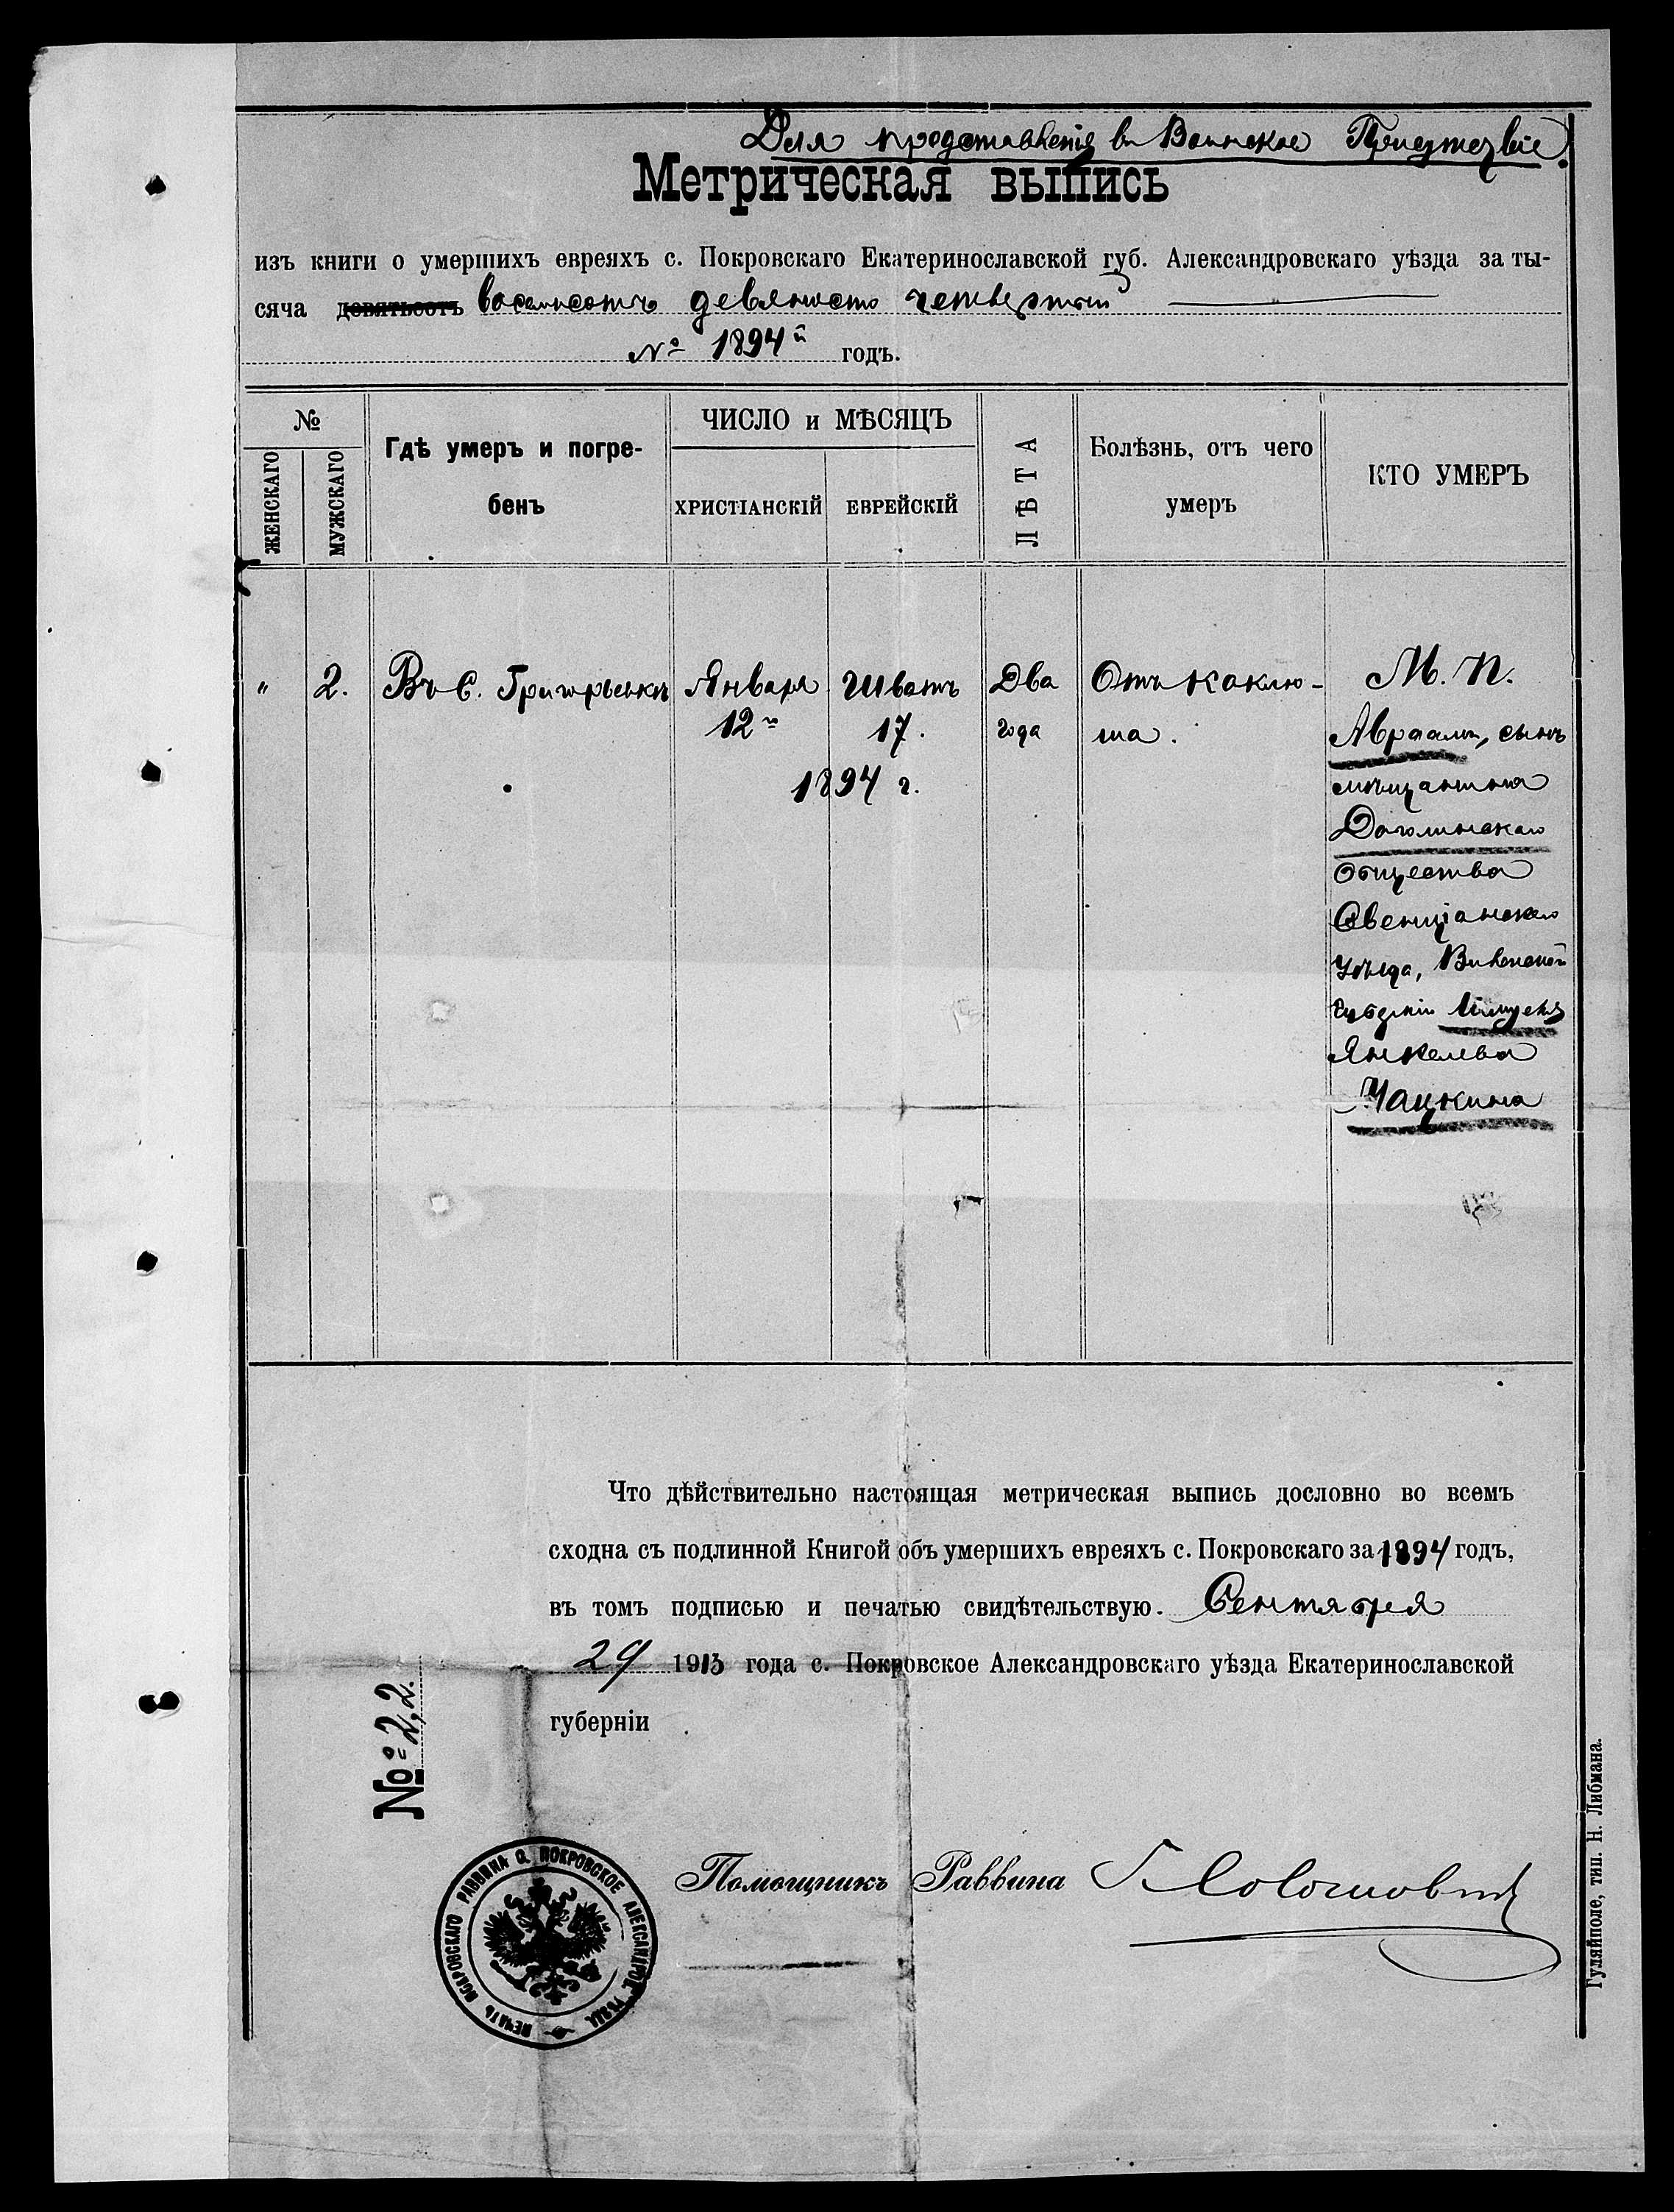 Для представленія въ Воинское Присутствіе.
Метрическая выпись
изъ книги о умершихъ евреяхъ с. Покровскаго Екатеринославской губ. Александровскаго уѣзда за ты-
сяча девятьсотъ восемьсотъ девяносто четвертый
№ 1894й годъ.
№
ЖЕНСКАГО
МУЖСКАГО
Гдѣ умеръ и погре-
бенъ
ЧИСЛО и МѢСЯЦЪ
ХРИСТІАНСКІЙ
ЕВРЕЙСКІЙ
ЛѢТА
Болѣзнь, отъ чего
умеръ
КТО УМЕРЪ
"
2.
Въ с.
Января
12
Шватъ
17.
1894 г.
Два
года
Отъ коклю-
ша.
М. П.
Авраамъ, сынъ
мѣщанина
Доголинскаго
Общества
Свенцянскаго
Уѣзда, Виленской
Губерніи
Янкелева
Чацкина
Что дѣйствительно настоящая метрическая выпись дословно во всемъ
сходна съ подлинной Книгой объ умершихъ евреяхъ с. Покровскаго за 1894 годъ,
въ томъ подписью и печатью свидѣтельствую. Сентября
29 1913 года с. Покровское Александровскаго уѣзда Екатеринославской
губерніи
№ 22.
Помощникъ Раввина
ПЕЧАТЬ ПОКРОВСКАГО РАВВИНА С. ПОКРОВСКОЕ АЛЕКСАНДРОВ. УѢЗДА
Гуляйполе, тип. Н. Либмана.